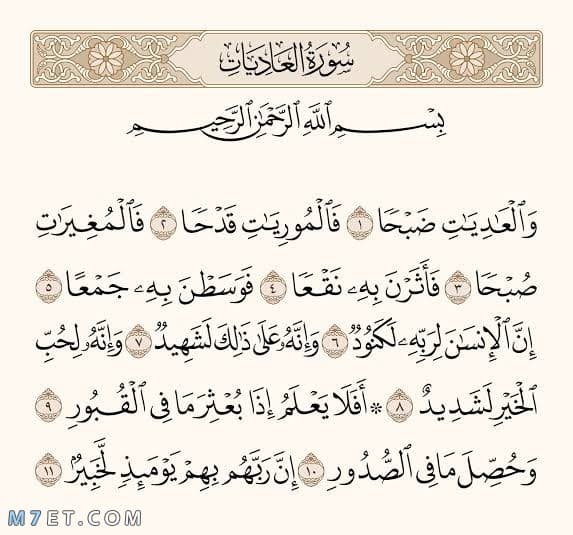 سُورَةُ الْعَادِيَاتِ
بِسْمِ ٱللَّهِ ٱلرَّحْمَٰنِ ٱلرَّحِيمِ
وَٱلْعَٰدِيَٰتِ ضَبْحًا ١ فَٱلْمُورِيَٰتِ قَدْحًا ٢ فَٱلْمُغِيرَٰتِ
صُبْحًا ٣ فَأَثَرْنَ بِهِۦ نَقْعًا ٤ فَوَسَطْنَ بِهِۦ جَمْعًا ٥
إِنَّ ٱلْإِنسَٰنَ لِرَبِّهِۦ لَكَنُودٌ ٦ وَإِنَّهُۥ عَلَىٰ ذَٰلِكَ لَشَهِيدٌ ٧ وَإِنَّهُۥ لِحُبِّ
ٱلْخَيْرِ لَشَدِيدٌ ٨ ۞ أَفَلَا يَعْلَمُ إِذَا بُعْثِرَ مَا فِى ٱلْقُبُورِ ٩
وَحُصِّلَ مَا فِى ٱلصُّدُورِ ١٠ إِنَّ رَبَّهُم بِهِمْ يَوْمَئِذٍ لَّخَبِيرٌۢ ١١
M7ET.COM